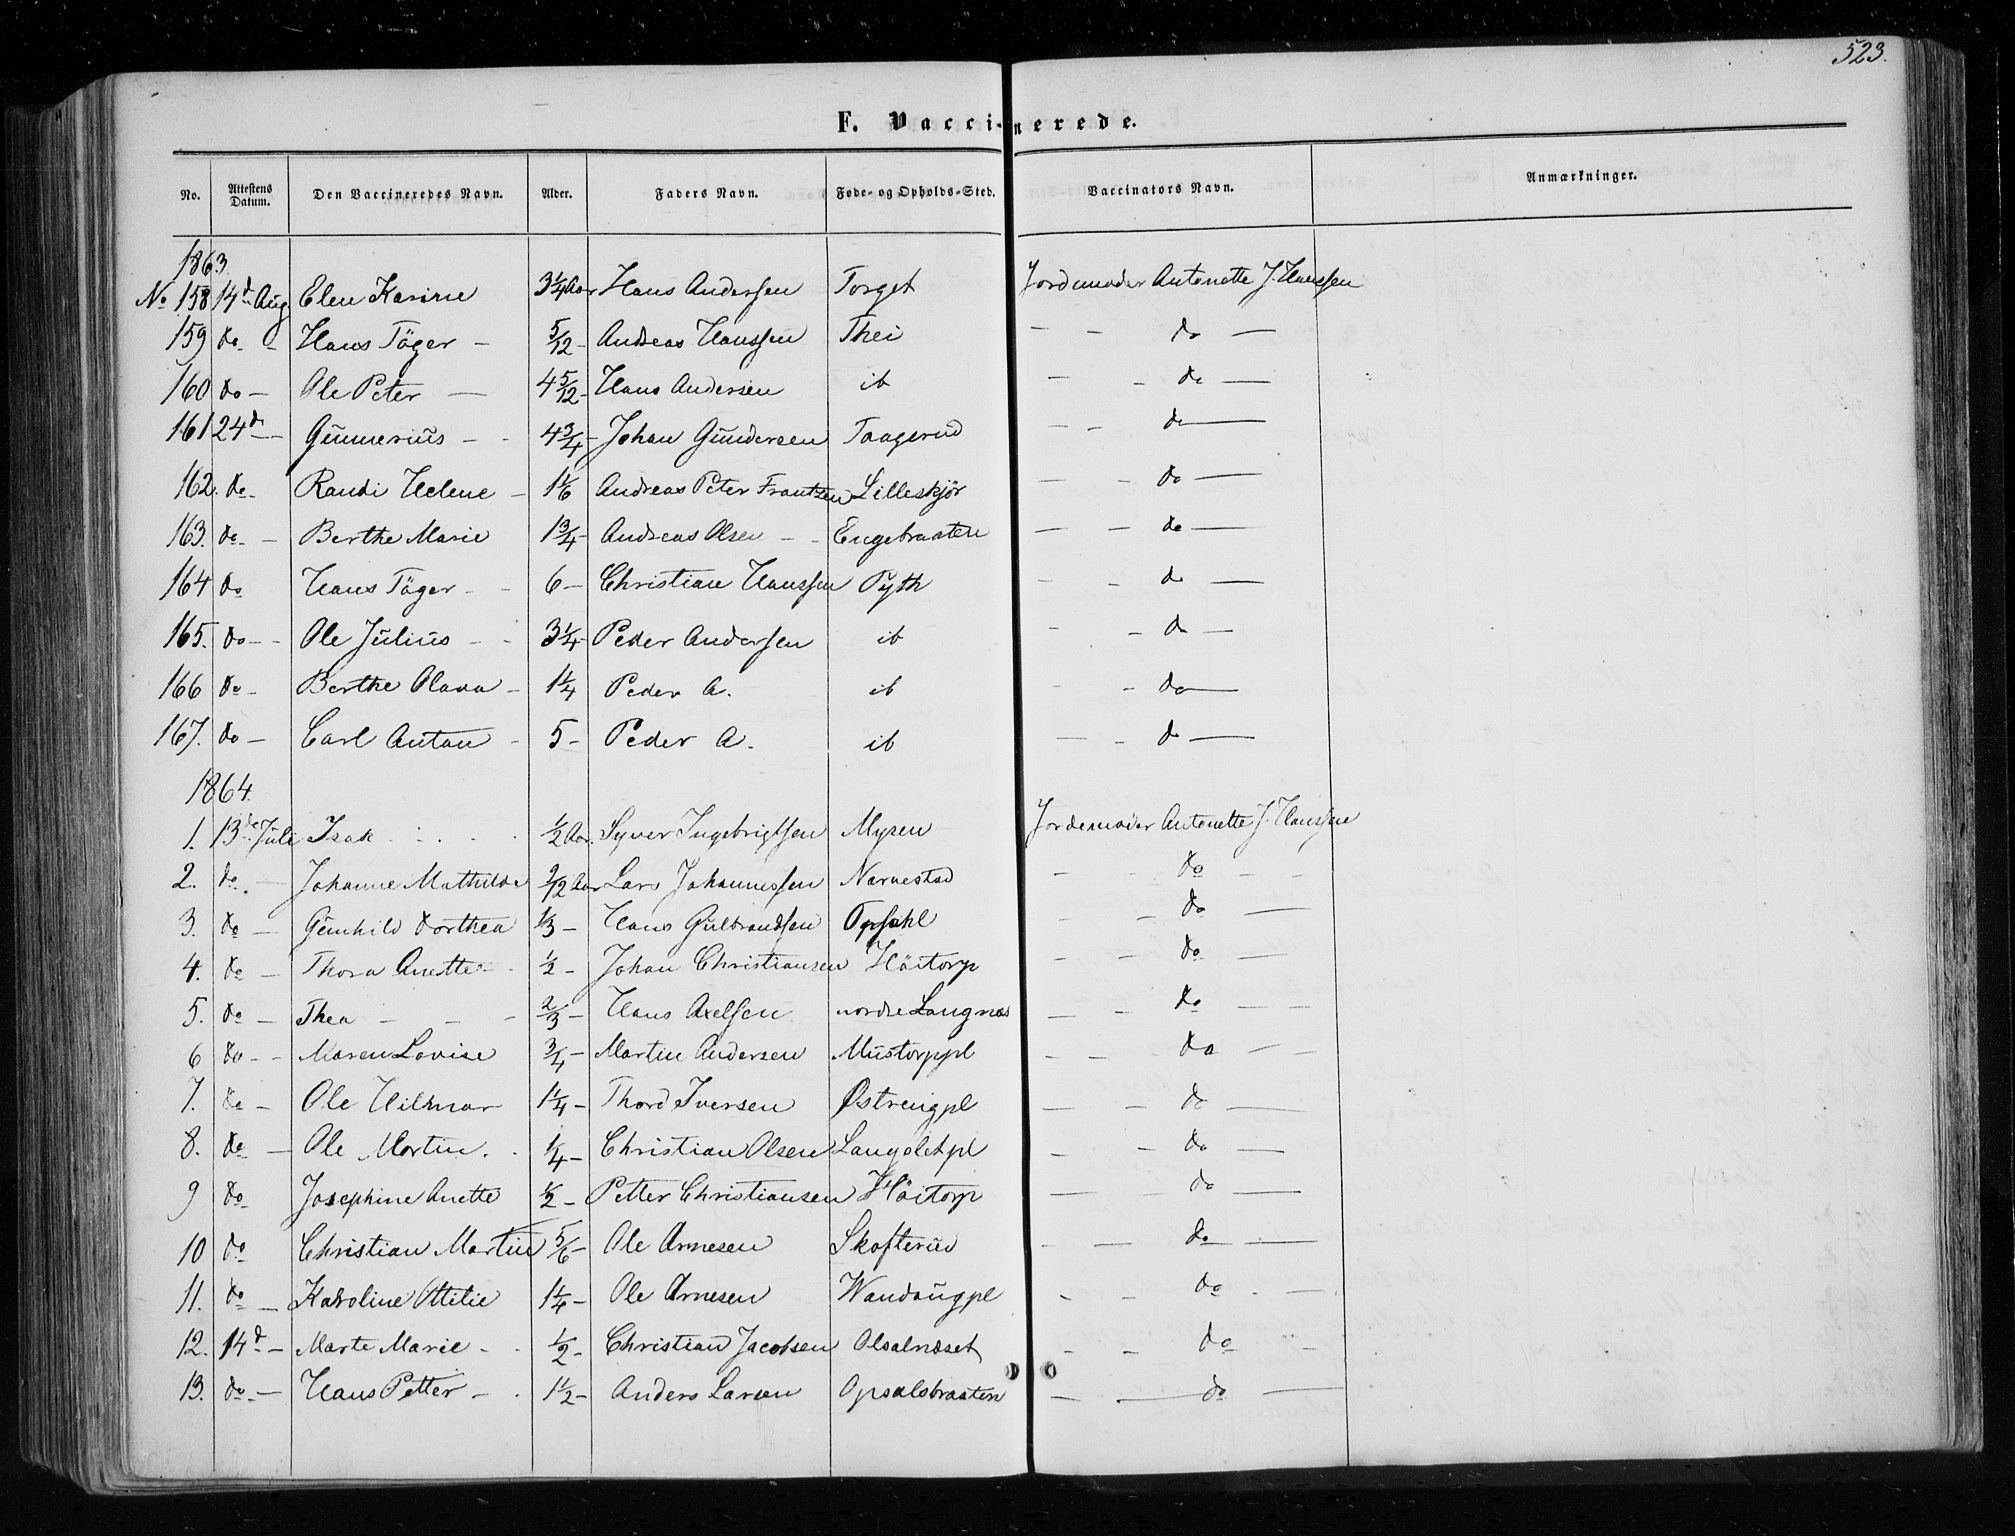 523.
F. Vaccinerede.
No. Attestens Datum. Den Vaccineredes Navn. Alder. Faders Navn. Føde- og Opholds-Sted. Vaccinators Navn. Anmærkninger.
1863.
No 158 14d Aug Elen Karine 3 1/4 Aar Hans Anderssen Torget Jordemoder Antonette J. Hanssen
159 do - Hans Töger - 5/12 - Andreas Hanssen Thei - - do -
160 do - Ole Peter - 4 5/12 - Hans Andersen ib - - do -
161 24d - Gunnerius - - 4 3/4 - Johan Gundersen Taagerud - - do -
162. do - Randi Helene - 1 1/6 Andreas Peter Frantzen Lilleskjör - - do -
163. do - Berthe Marie 1 3/4 - Andreas Olsen - - Engebraaten - - do -
164 do Hans Töger - - 6 - Christian Hanssen Pyth - - do -
165. do - - Ole Julius - - 3 1/4 - Peder Anderssen ib - - do -
166 do - Berthe Olava - 1 1/4 Peder A. ib - - do -
167. do - Carl Anton - 5 - Peder A. ib - - do -
1864.
1. 13de Juli Isak . . . . 1/2 Aar. Syver Ingebrigtsen Mysen Jordemoder Antonette J. Hanssen
2. do - Johanne Mathilde 9/12 Aar Lars Johannessen Narvestad - - do - -
3. do - Gunhild Dorthea 1/3 - Hans Gulbrandsen Opsahl - - do -
4. do - Thora Anette - 1/2 - Johan Christiansen Höitorp - - do -
5. do - Thea - - - 2/3 - Hans Axelsen nordre Langnæs - - do - -
6 do - - Maren Lovise 3/4 - Martin Andersen Mustorppl - - do - -
7. do - Ole Hilmar 1 1/4 - Thord Iversen Østrengpl - - do -
8. do - Ole Martin. . 1/4 - Christian Olsen Langsletpl - - do -
9 do Josephine Anette 1/2 - Petter Christiansen Höitorp - - do -
10 do Christian Martin 5/6 - Ole Arnesen Skofterud - - do -
11. do - Karoline Ottilie 1 1/4 - Ole Arnesen Wandaugpl - - do . -
12. 14d - Marte Marie - . 1/2 - Christian Jacobsen Olsalnæset - - do -
13. do - Hans Petter - . 1 1/2 - Anders Larsen Opsalsbraaten - - do -